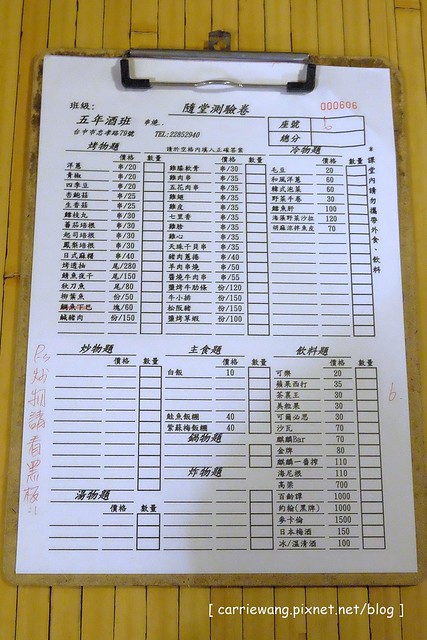 000606
班級: 隨堂測驗卷
五年酒班 串燒..
台中市忠孝路79號 TEL:22852940
座號 6
總分
請於空格內填入正確答案
*課堂內請勿攜帶外食、飲料
烤物題
價格 數量
洋蔥 串/20
青椒 串/20
四季豆 串/20
杏鮑菇 串/25
生香菇 串/25
鱈枝丸 串/30
蕃茄培根 串/30
起司培根 串/30
鳳梨培根 串/30
日式麻糬 串/40
烤透抽 尾/280
鯖魚夜干 尾/150
秋刀魚 尾/80
柳葉魚 份/50
鯛魚下巴 塊/60
鹹豬肉 份/150
價格 數量
雞膝軟骨 串/30
雞肉串 串/35
五花肉串 串/35
雞翅 串/35
雞皮 串/35
七里香 串/35
雞胗 串/35
雞心 串/35
天珠干貝串 串/35
豬肉蔥捲 串/40
牛肉串燒 串/50
醬燒牛肉串 串/55
鹽烤牛肋條 份/120
牛小排 份/150
松阪豬 份/150
鹽烤草蝦 份/100
冷物題
價格 數量
毛豆 20
和風洋蔥 60
韓式泡菜 60
野菜手卷 30
鱈魚肝 100
海藻野菜沙拉 120
胡麻涼拌魚皮 70
炒物題
價格 數量
湯物題
價格 數量
主食題
價格 數量
白飯 10
鮭魚飯糰 40
紫蘇梅飯糰 40
鍋物題
炸物題
飲料題
價格 數量
可樂 20
蘋果西打 35
茶裏王 30
美粒果 30
可爾必思 30
沙瓦 70
麒麟Bar 70
金牌 80
麒麟一番搾 110
海尼根 110
高粱 700
百齡譚 1000
約翰(黑牌) 1000
麥卡倫 1500
日本梅酒 150
冰/溫清酒 100
6.
Ps炒物請看黑板
[ carriewang.pixnet.net/blog ]